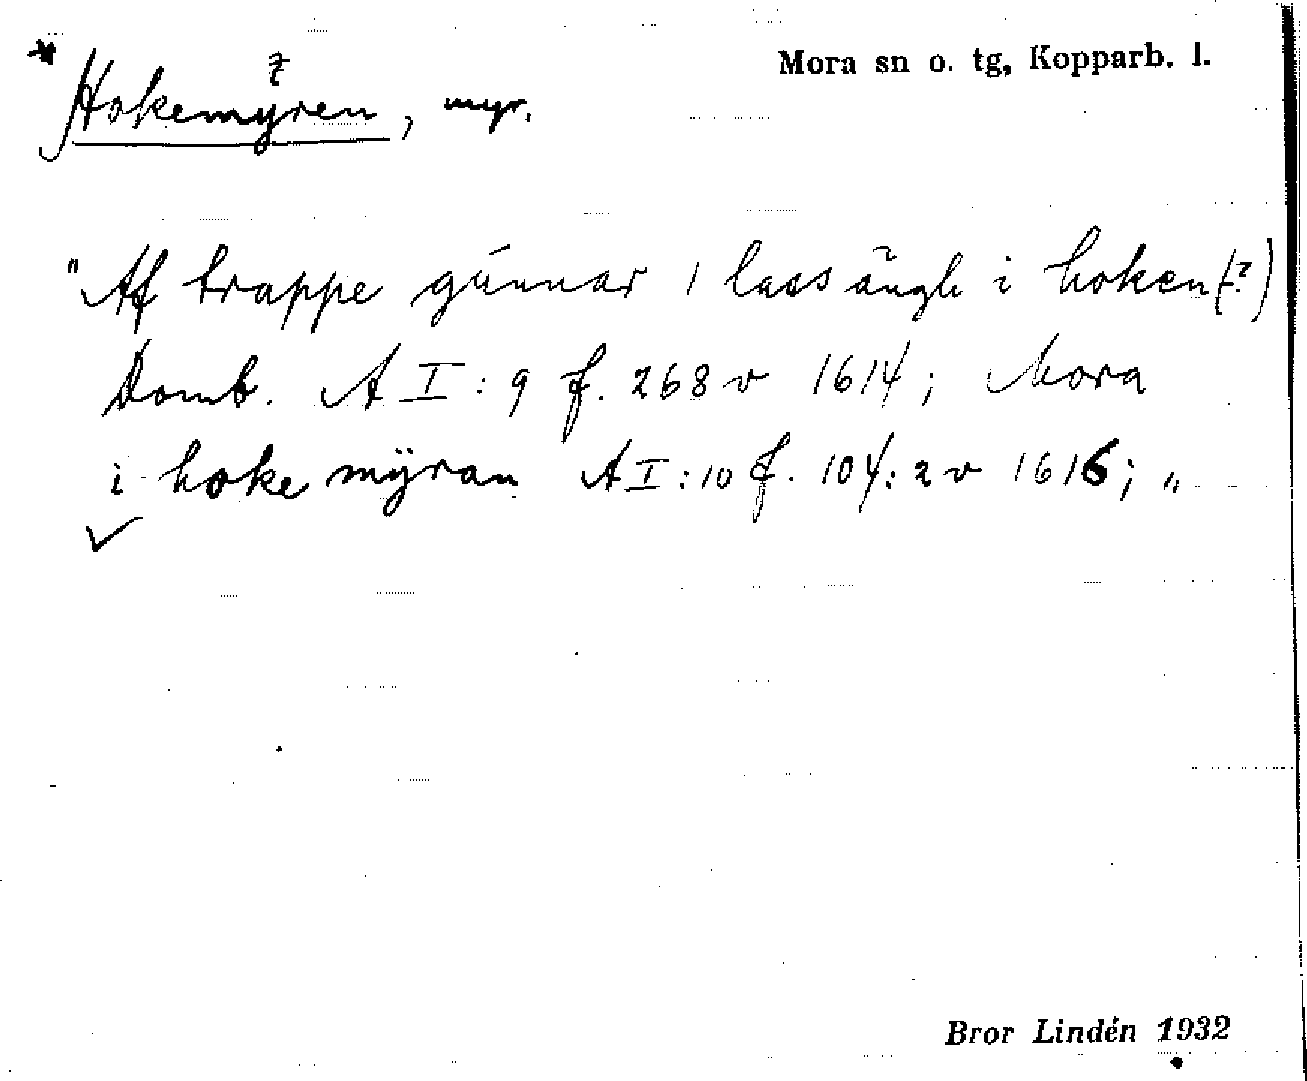 * Hokemyren, myr.
Mora sn o. tg, Kopparb. l.
"Af trappe gunnar 1 lass ängh i hoken (?)
Domb. A I: 9 f. 268 v 1614; Mora
i hoke mÿran A I: 10 f. 104: 2 v 1616; "
Bror Lindén 1932